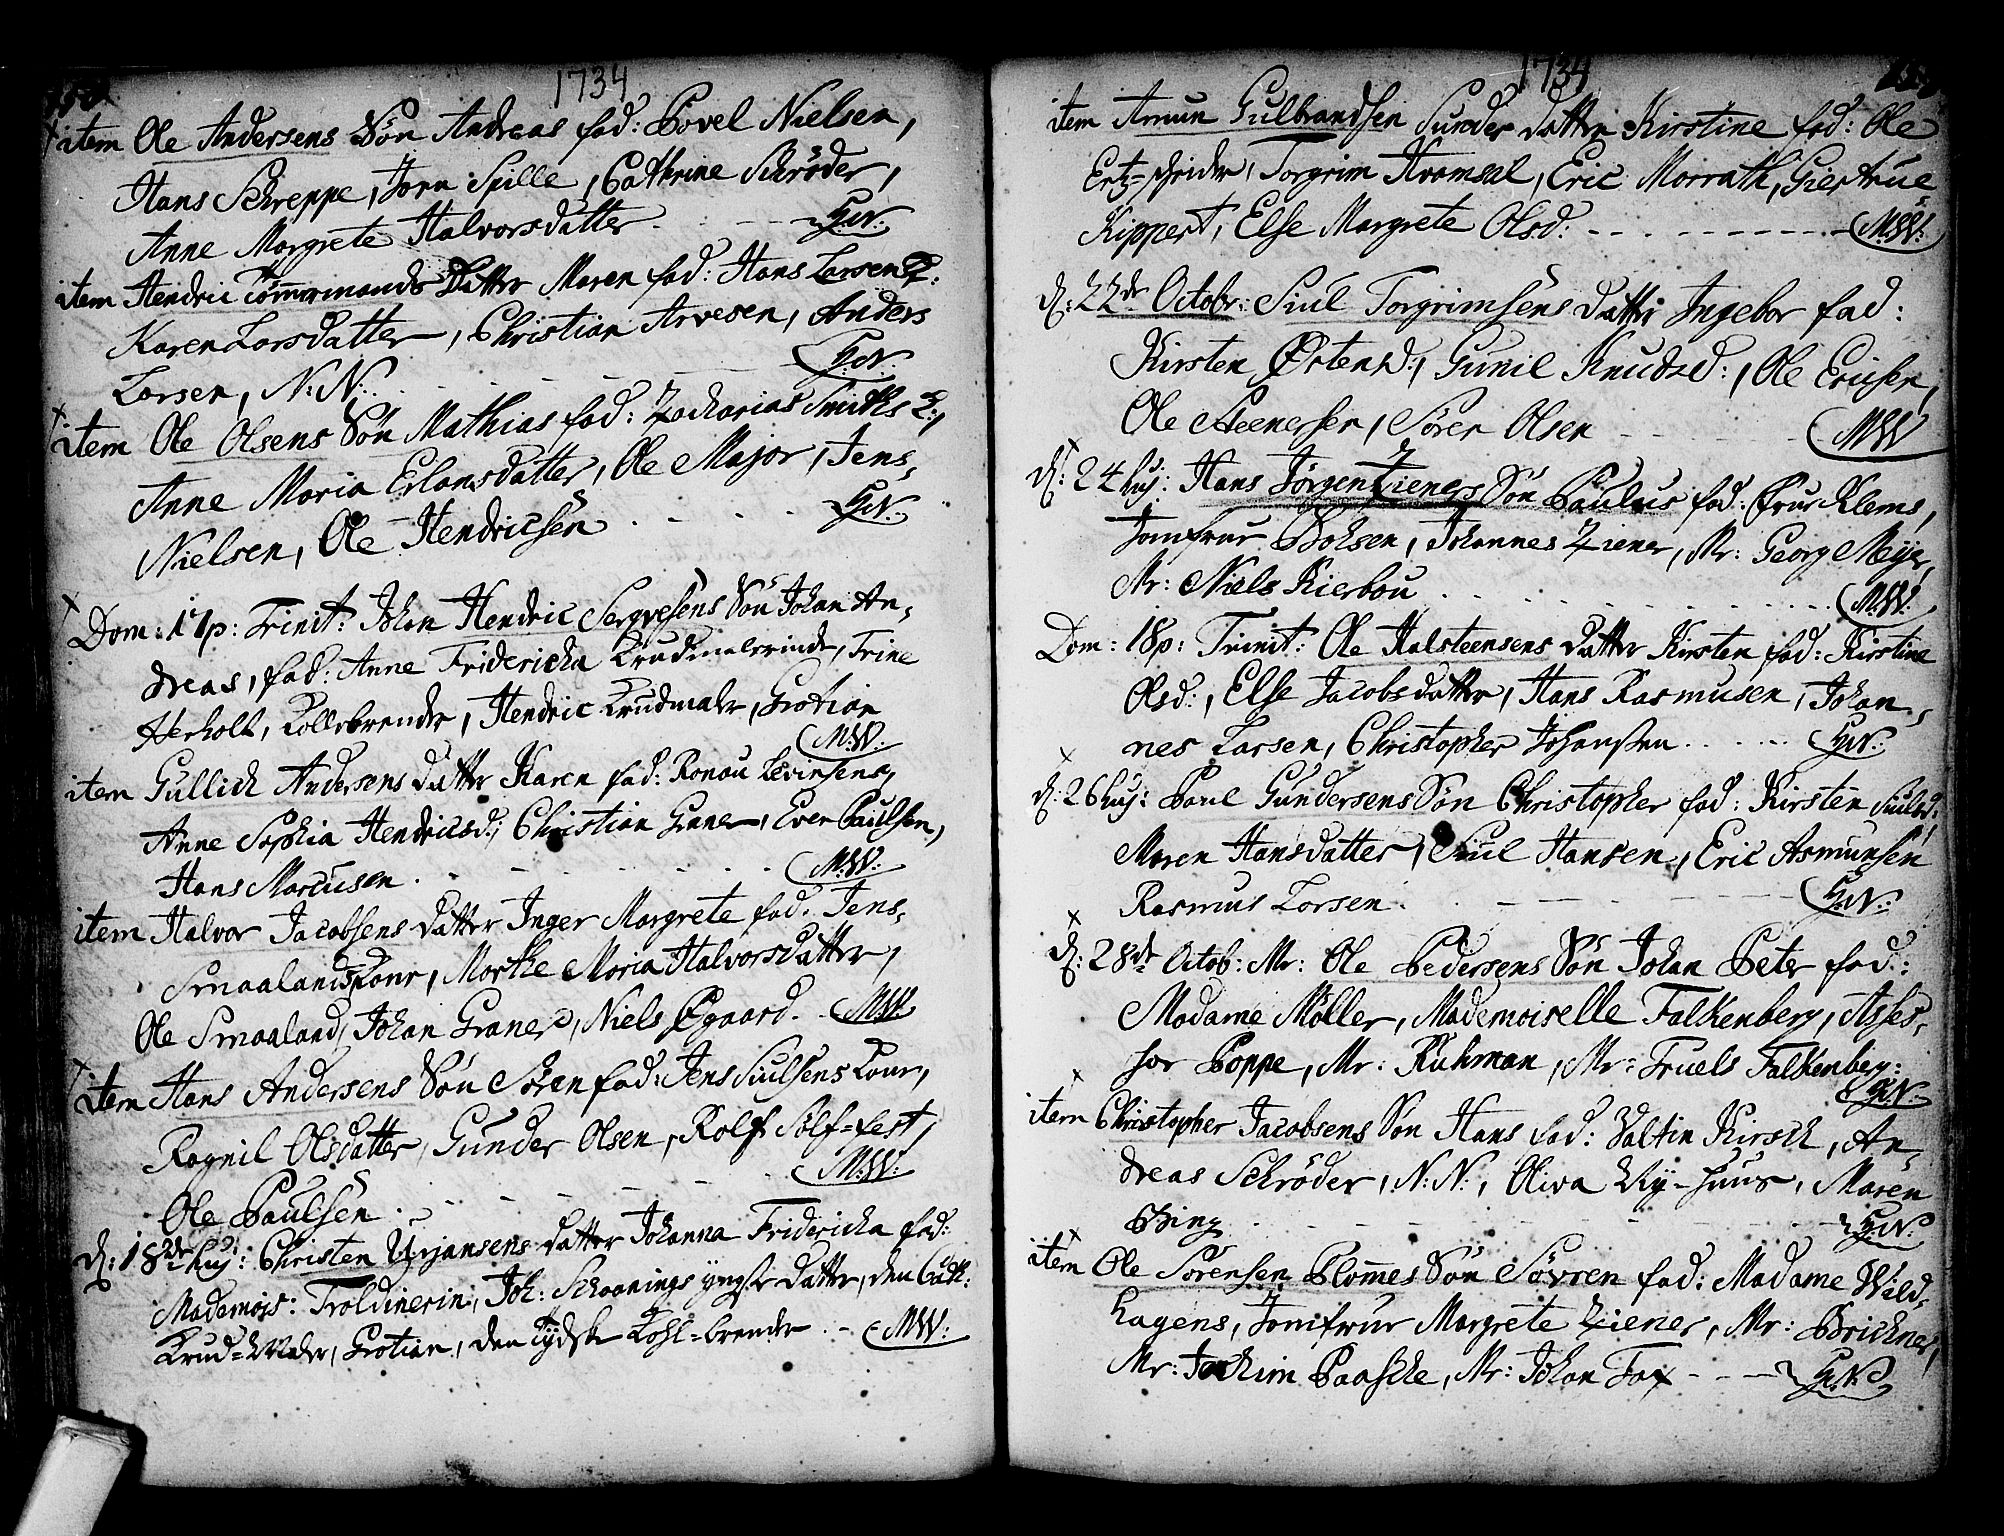 1734
item Ole Andersens Søn Andreas fad: Povel Nielsen,
Hans Schreppe, Jørn Spille, Cathrine Schrøder,
Anne Margrete Halvorsdatter
item Hendric Tömmermands Datter Maren fad: Hans Larsens K:
Karen Larsdatter, Christian Arvesen, Anders
Larsen, N:N:
item Ole Olsens Søn Mathias fad: Zacharias Smidts K:,
Anne Maria Erlandsdatter, Ole Major, Jens
Nielsen, Ole Hendricsen
Dom: 17 p: Trinit: Johan Hendric Sergvesens Søn Johan An-
dreas, fad: Anne Fridericha Krudmalerinde, Trine
Herholt, Kollebrender, Hendric Krudmaler, Grotian
M:W:
item Gullich Andersens datter Karen fad: Ronau Levinsens,
Anne Sophia Hendricsd:, Christian Graner, Even Paulsen,
Hans Marcusen
M:W:
item Halvor Jacobsens datter Inger Margrete fad: Jens
Smaalands Kone, Marthe Maria Halvorsdatter,
Ole Smaaland, Johan Graner, Niels Øgaard. M:W
item Hans Andersens Søn Søren fad: Jens Siulsens Kone,
Ragnil Olsdatter, Gunder Olsen, Rolf Sølf-fest,
Ole Paulsen
M:W:
d: 18de huj: Christen Urjansens datter Johanna Fridericha fad:
Mademois: Troldinerin, Joh: Schoonings yngste datter, den
Krud-Maler, Grotian, den tydske Kohl-brender M:W:
1734
item Amun Gulbrandsen Sunder datter Kirstine fad: Ole
Ertz-scheider, Torgrim Kvamsel, Eric Morrath, Giertrue
Kippert, Else Margrete Olsd: M:W:
d: 22de Octobr: Siul Torgrimsens datter Ingebor fad:
Kirsten Østensd:, Gunil Knudsd:, Ole Ericsen,
Ole Steenersen, Sören Olsen
MW
d: 24 huj: Hans Jørgen Zieners Søn Paulus fad: Frue Klems,
Jomfrue Bohsen, Johannes Ziener, Mr: Georg Meyer,
Mr: Niels Kierbou
M:W:
Dom: 18 p: Trinit: Ole Halsteensens datter Kirsten fad: Kirstine
Olsd:, Else Jacobsdatter, Hans Rasmusen, Johan-
nes Larsen, Christopher Johansen
d: 26 huj: Paul Gundersens Søn Christopher fad: Kirsten Siulsd:,
Maren Hansdatter, Siul Hansen, Eric Asmunsen
Rasmus Larsen
d: 28de Octob: Mr: Ole Pedersens Søn Johan Peter fad:
Madame Möller, Mademoiselle Falkenberg, Asses-
sor Poppe, Mr: Ruhman, Mr: Truels Falkenberg:
item Christopher Jacobsens Søn Hans fad: Valtin Kirsch, An-
dreas Schröder, N:N:, Oliva Ny-huus, Maren
Bing
item Ole Sørensen Blommes Søn Søvren fad: Madame Wild-
hagens, Jomfrue Margrete Ziener, Mr: Brichner,
Mr: Jochim Paasche, Mr: Johan Fax